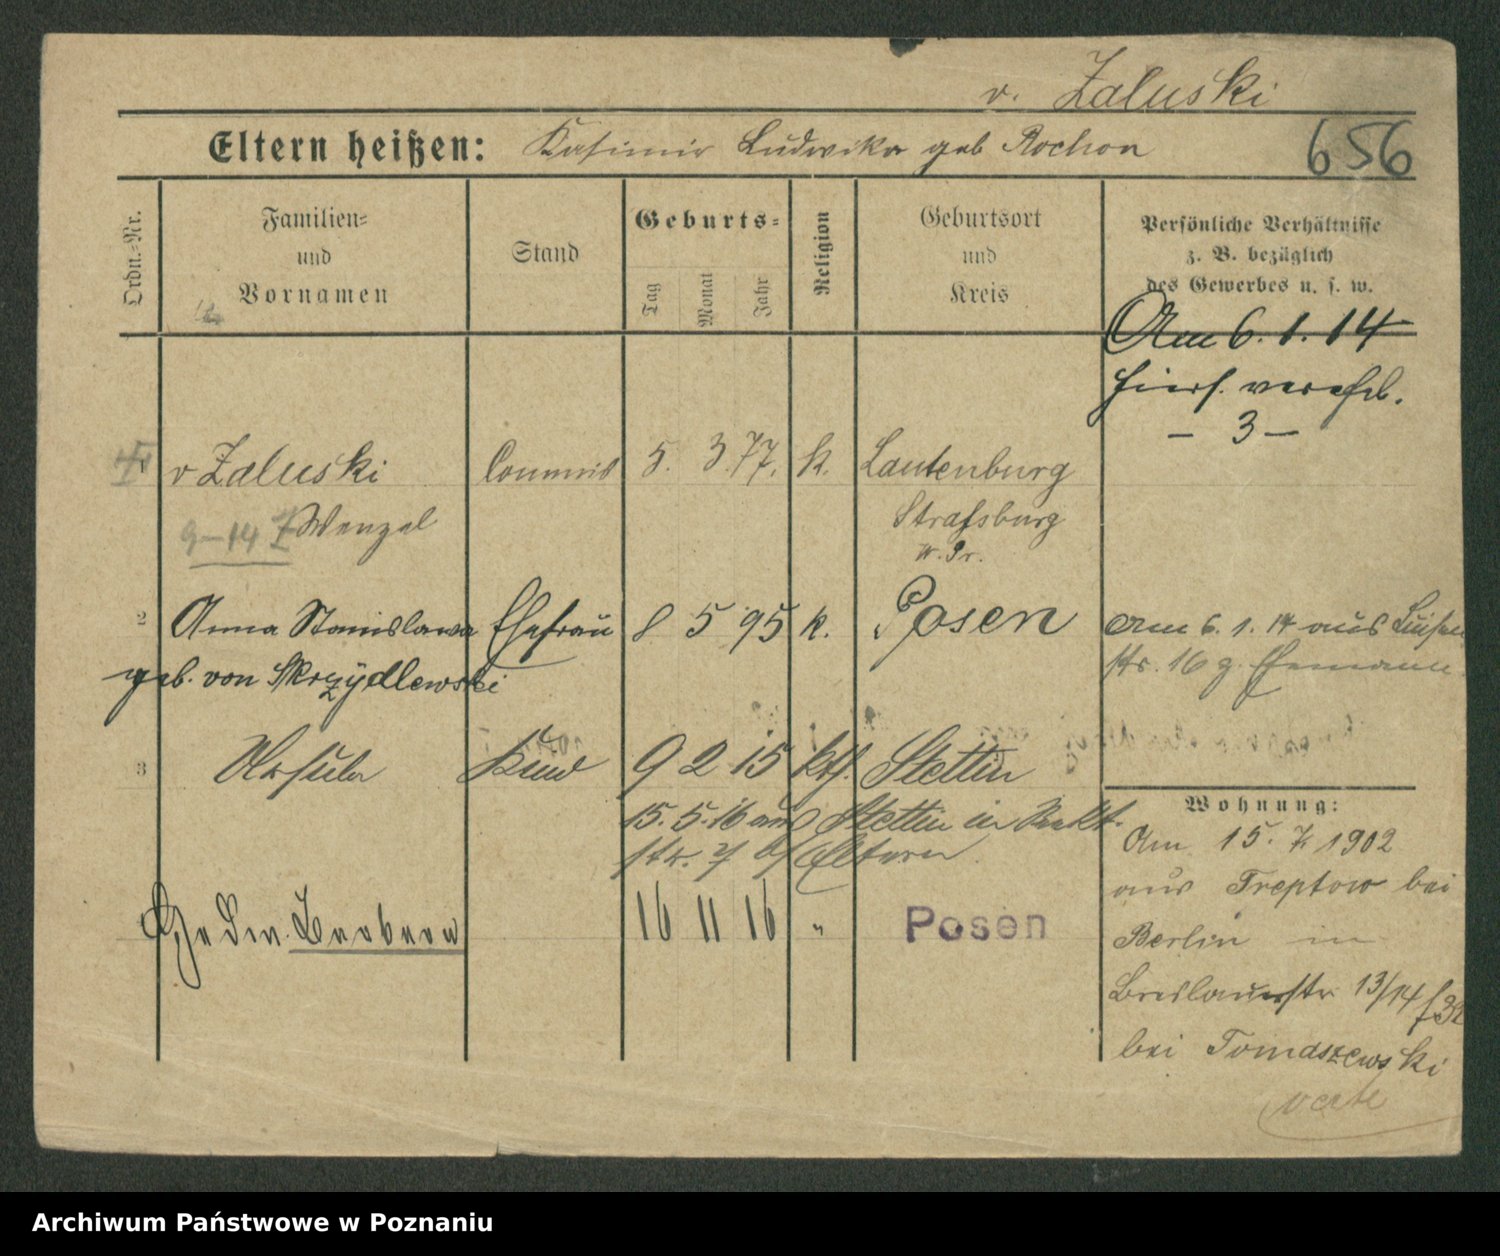 v. Zaluski
Eltern heißen: Kasimir Ludwika geb Rochon
656
Ordn.-Nr.
Familien- und Vornamen
Stand
Geburts-
Tag Monat Jahr
Religion
Geburtsort und Kreis
Persönliche Verhältnisse
z. B. bezüglich
des Gewerbes u. s. w.
Am 6. 1. 14
hiers. verehel.
- 3 -
v Zaluski Commis 5. 3. 77. k. Lautenburg
9-14 Wenzel Strafsburg
W. Pr.
2 Anna Stanislawa Ehefrau 8 5 95 k. Posen am 6. 1. 14 aus Luisen
geb. von Skrzydlewski str. 16 z. Ehemann
3 Ursula Kind 9 2 15 kth. Stettin
15. 5. 16 aus Stettin in
str. 7 b/ Eltern
Barbara 16 11 16 " Posen
Wohnung:
Am 15. 7. 1902
aus Treptow bei
Berlin in
Breslauerstr 13/14
bei Tomaszewski
verte
Archiwum Państwowe w Poznaniu